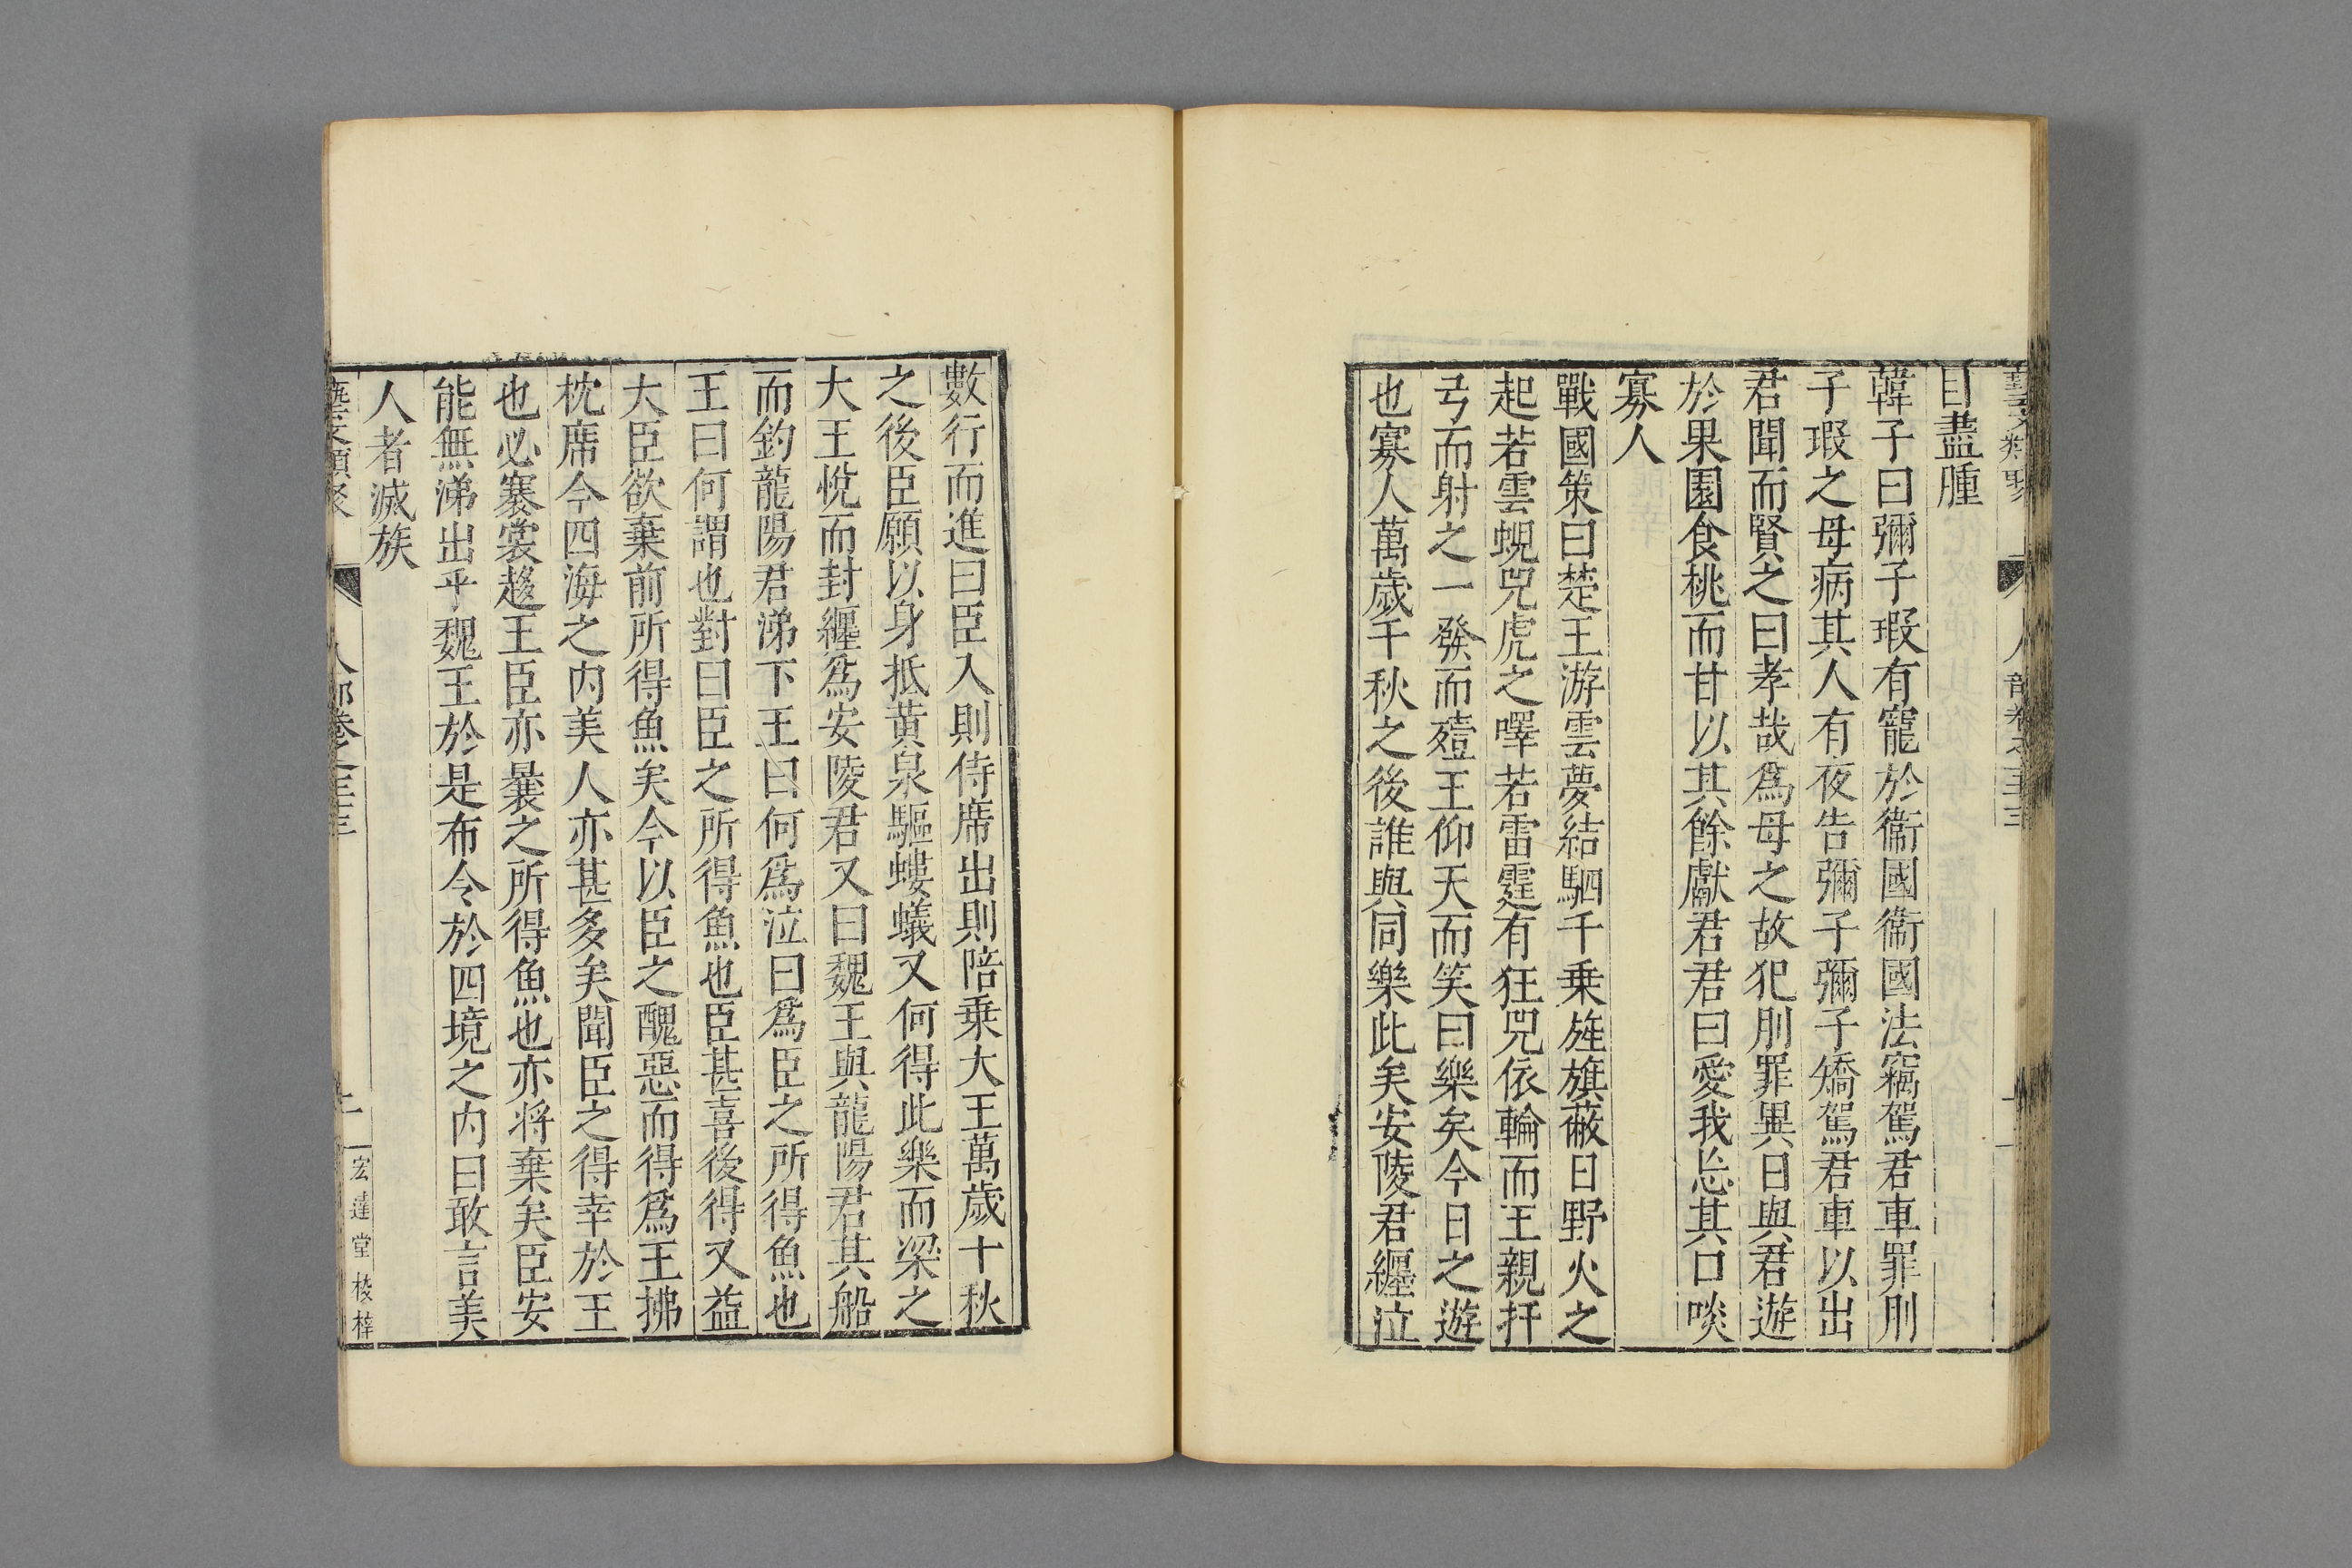 藝文類聚 人部卷之三十三
目盡腫
韓子曰彌子瑕有寵於衞國衞國法竊駕君車罪刖
子瑕之母病其人有夜告彌子彌子矯駕君車以出
君聞而賢之曰孝哉爲母之故犯刖罪異日與君遊
於果園食桃而甘以其餘獻君君曰愛我忘其口啖
寡人
戰國策曰楚王游雲夢結駟千乗旌旗蔽日野火之
起若雲蜺兕虎之嘷若雷霆有狂兕依輪而王親扞
弓而射之一發而殪王仰天而笑曰樂矣今日之遊
也寡人萬歲千秋之後誰與同樂此矣安陵君纏泣
數行而進曰臣入則侍席出則陪乗大王萬歲十秋
之後臣願以身抵黃泉驅螻蟻又何得此樂而梁之
大王悅而封纏爲安陵君又曰魏王與龍陽君其船
而釣龍陽君涕下王曰何爲泣曰爲臣之所得魚也
王曰何謂也對曰臣之所得魚也臣甚喜後得又益
大臣欲棄前所得魚矣今以臣之醜惡而得爲王拂
枕席今四海之內美人亦甚多矣聞臣之得幸於王
也必褰裳趍王臣亦曩之所得魚也亦将棄矣臣安
能無涕出乎魏王於是布令於四境之內曰敢言美
人者滅族
藝文類聚 人部卷之三十三 宏達堂校梓